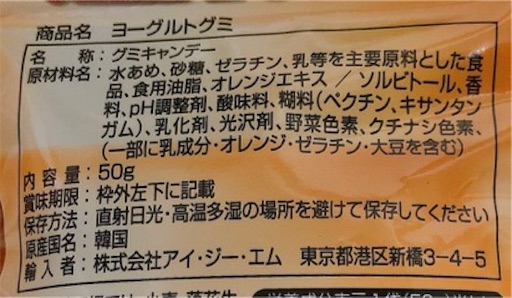 商品名 ヨーグルトグミ
名称:グミキャンデー
原材料名:水あめ、砂糖、ゼラチン、乳等を主要原料とした食
品、食用油脂、オレンジエキス/ソルビトール、香
料、pH調整剤、酸味料、糊料(ペクチン、キサンタン
ガム)、乳化剤、光沢剤、野菜色素、クチナシ色素、
(一部に乳成分・オレンジ・ゼラチン・大豆を含む)
内容量:50g
賞味期限:枠外左下に記載
保存方法:直射日光・高温多湿の場所を避けて保存してください
原産国名:韓国
輸入者:株式会社アイ・ジー・エム 東京都港区新橋3-4-5